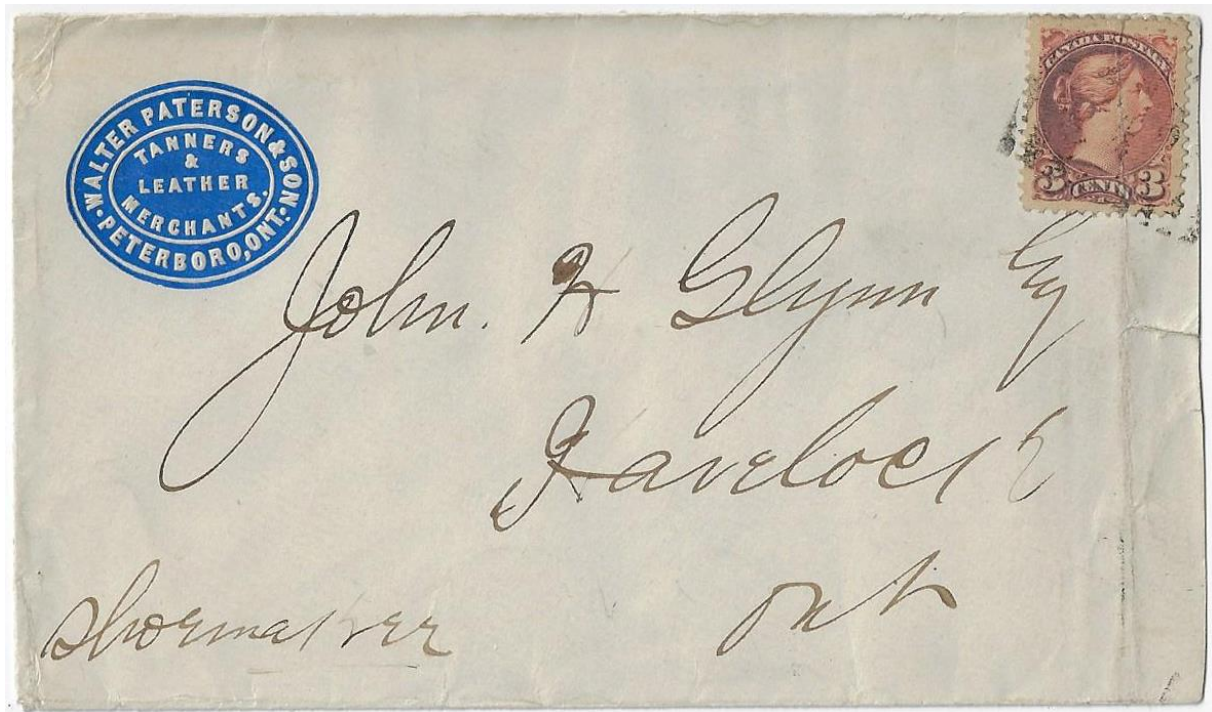 WALTER PATERSON & SON
TANNERS
&
LEATHER
MERCHANTS.
PETERBORO, ONT.
CANADA POSTAGE
3 CENTS 3
John. H Glynn Esq
Havelock
Ont
Shoemaker